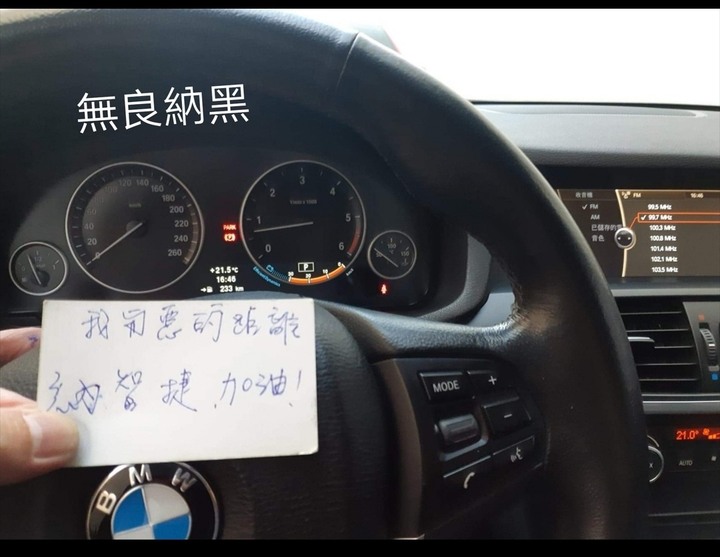 無良納黑
120 140 160 180 200 220 240 260
km/h
20
0
1 2 3 4 5 6
1/min x 1000
0
PARK
P
+21.5°C
16:46
233 km
收音機
FM
16:46
FM
AM
已儲存的
音色
99.5 MHz
99.7 MHz
100.3 MHz
100.8 MHz
101.4 MHz
102.1 MHz
103.5 MHz
的距離
納智捷 加油!
MODE
+
-
21.0°
AUTO
BMW